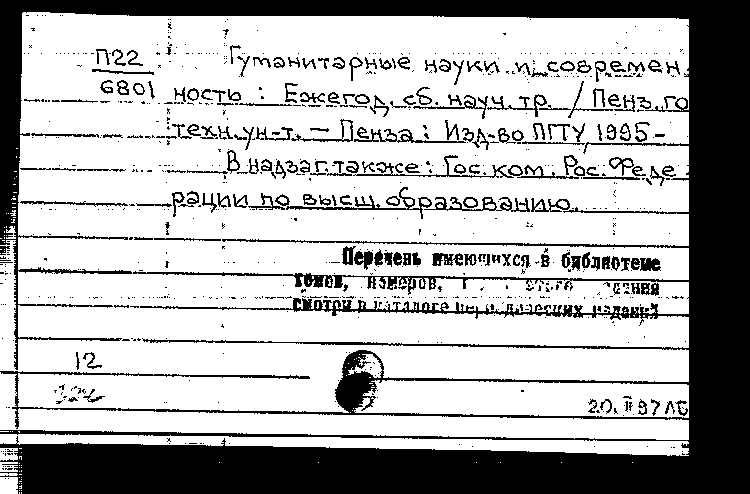 П22 Гуманитарные науки и современ-
6801 ность : Ежегод. сб. науч. тр. / Пенз. го
техн. ун-т. — Пенза : Изд-во ПГТУ, 1995 -
В надзаг. также : Гос. ком. Рос. Феде-
рации по высш. образованию.
Перечень имеющихся в библиотеке
томов, номеров,
смотри в каталоге периодических изданий
12
20. II 97 ЛБ